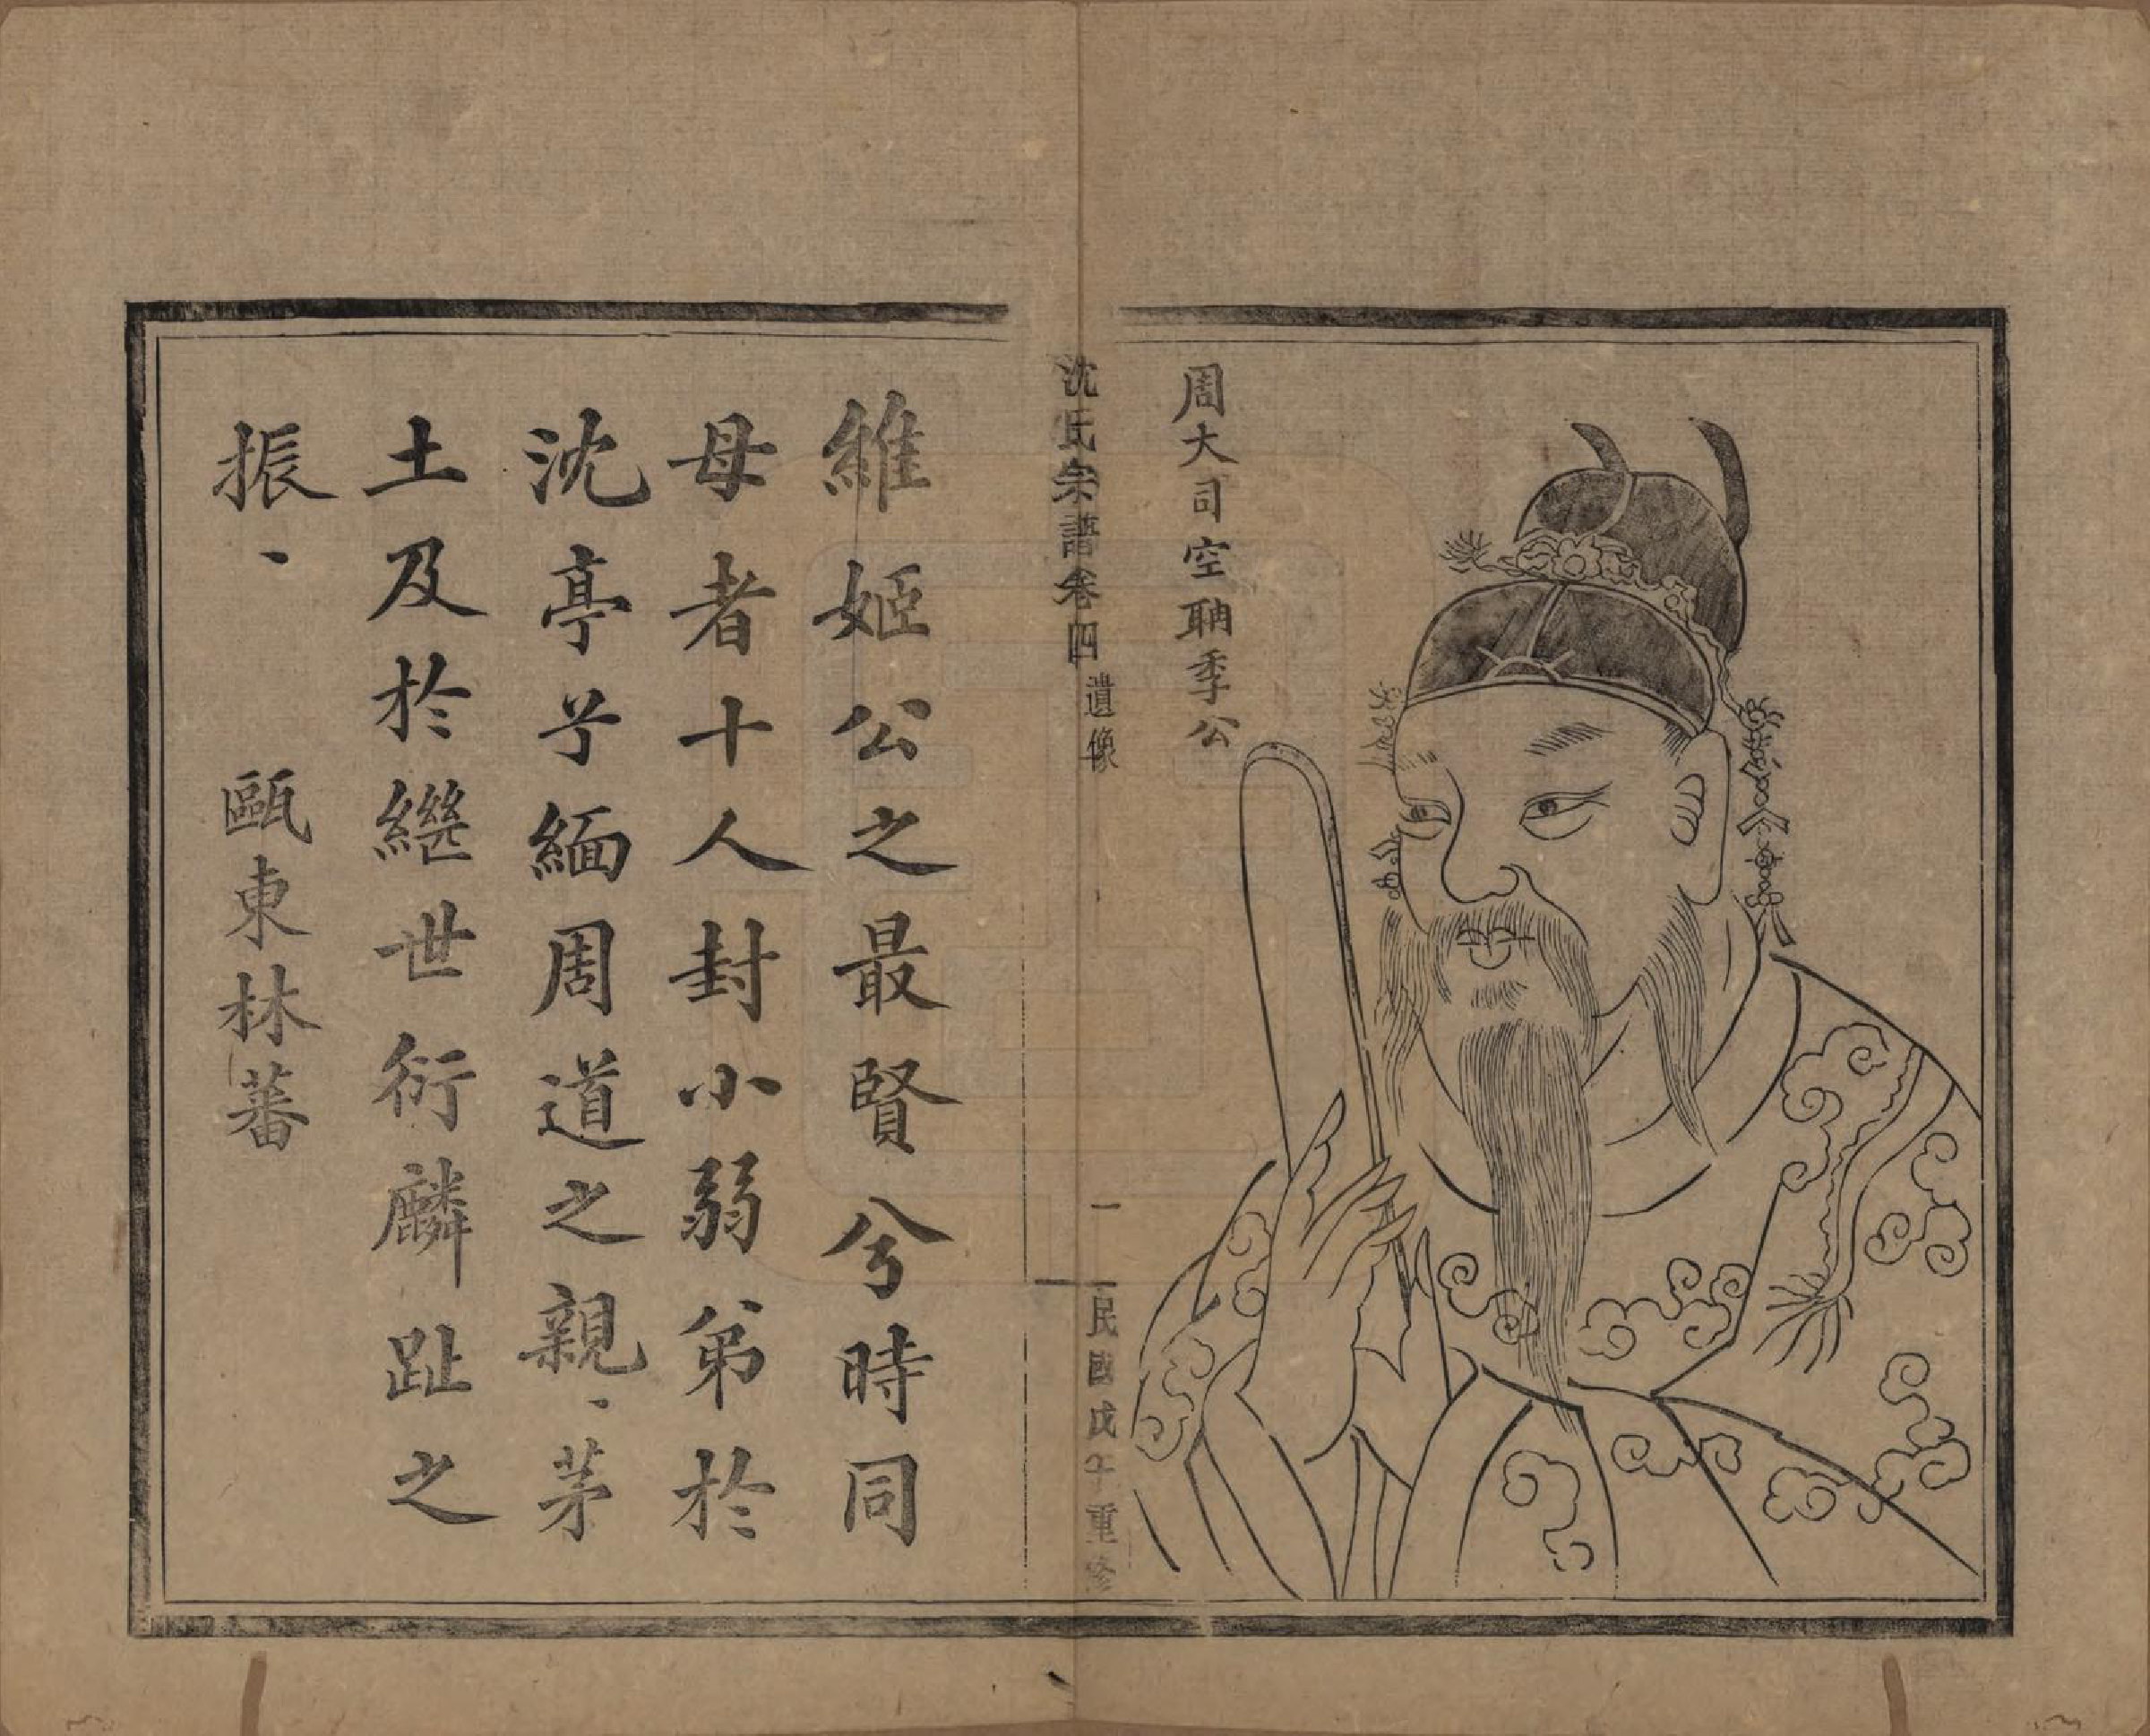 周大司空聃季公
沈氏宗譜卷四 遺像
一
民國戊午重修
維姬公之最賢兮時同
母者十人封小弱弟於
沈亭兮緬周道之親、茅
土及於繼世衍麟趾之
振、 甌東林蕃